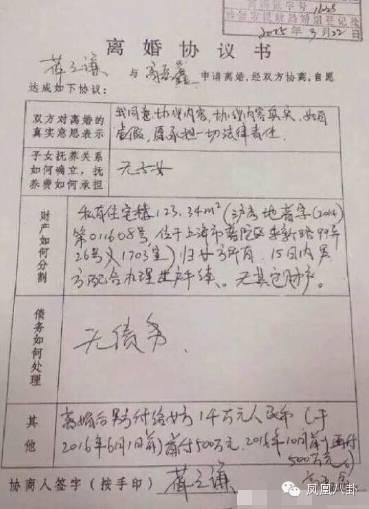 字号 1625
2015年3月22日
离婚协议书
薛之谦 与 高磊鑫 申请离婚，经双方协商，自愿
达成如下协议：
双方对离婚的
真实意思表示
我同意协议内容，协议内容真实，如有
虚假，愿承担一切法律责任．
子女抚养关系
如何确立，抚
养费如何承担
无子女
财产如何分割
私有住宅楼123.34m²（沪房地普字(2014)
第011608号，位于上海市普陀区 99弄
26号 1703室）归女方所有，15日内男
方配合办理过户手续。无其它财产。
债务如何处理
无债务．
其他
离婚后男方付给女方1千万元人民币（于
2016年6月1日前）首付500万元．2016年10月前再付
500万元
协商人签字（按手印） 薛之谦
凤凰八卦